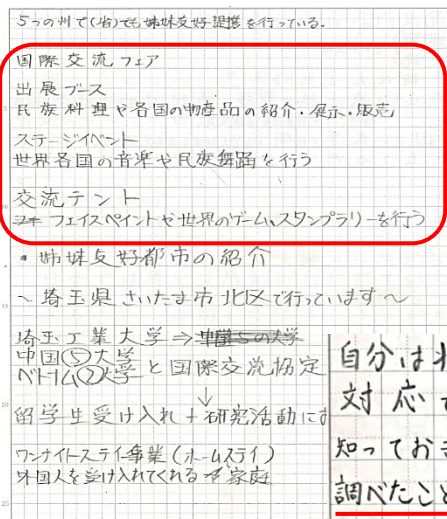 5つの州で(省)でも姉妹友好提携を行っている。
国際交流フェア
出展ブース
民族料理や各国の物産品の紹介・展示・販売
ステージイベント
世界各国の音楽や民族舞踊を行う
交流テント
フェイスペイントや世界のゲーム、スタンプラリーを行う
・姉妹友好都市の紹介
〜埼玉県さいたま市北区で行っています〜
埼玉工業大学⇒
中国⑤大学
ベトナム②大学 と国際交流協定
↓
留学生受け入れ+研究活動に
ワンナイトステイ事業(ホームステイ)
外国人を受け入れてくれる家庭
自分は
対応
知ってお
調べたこと